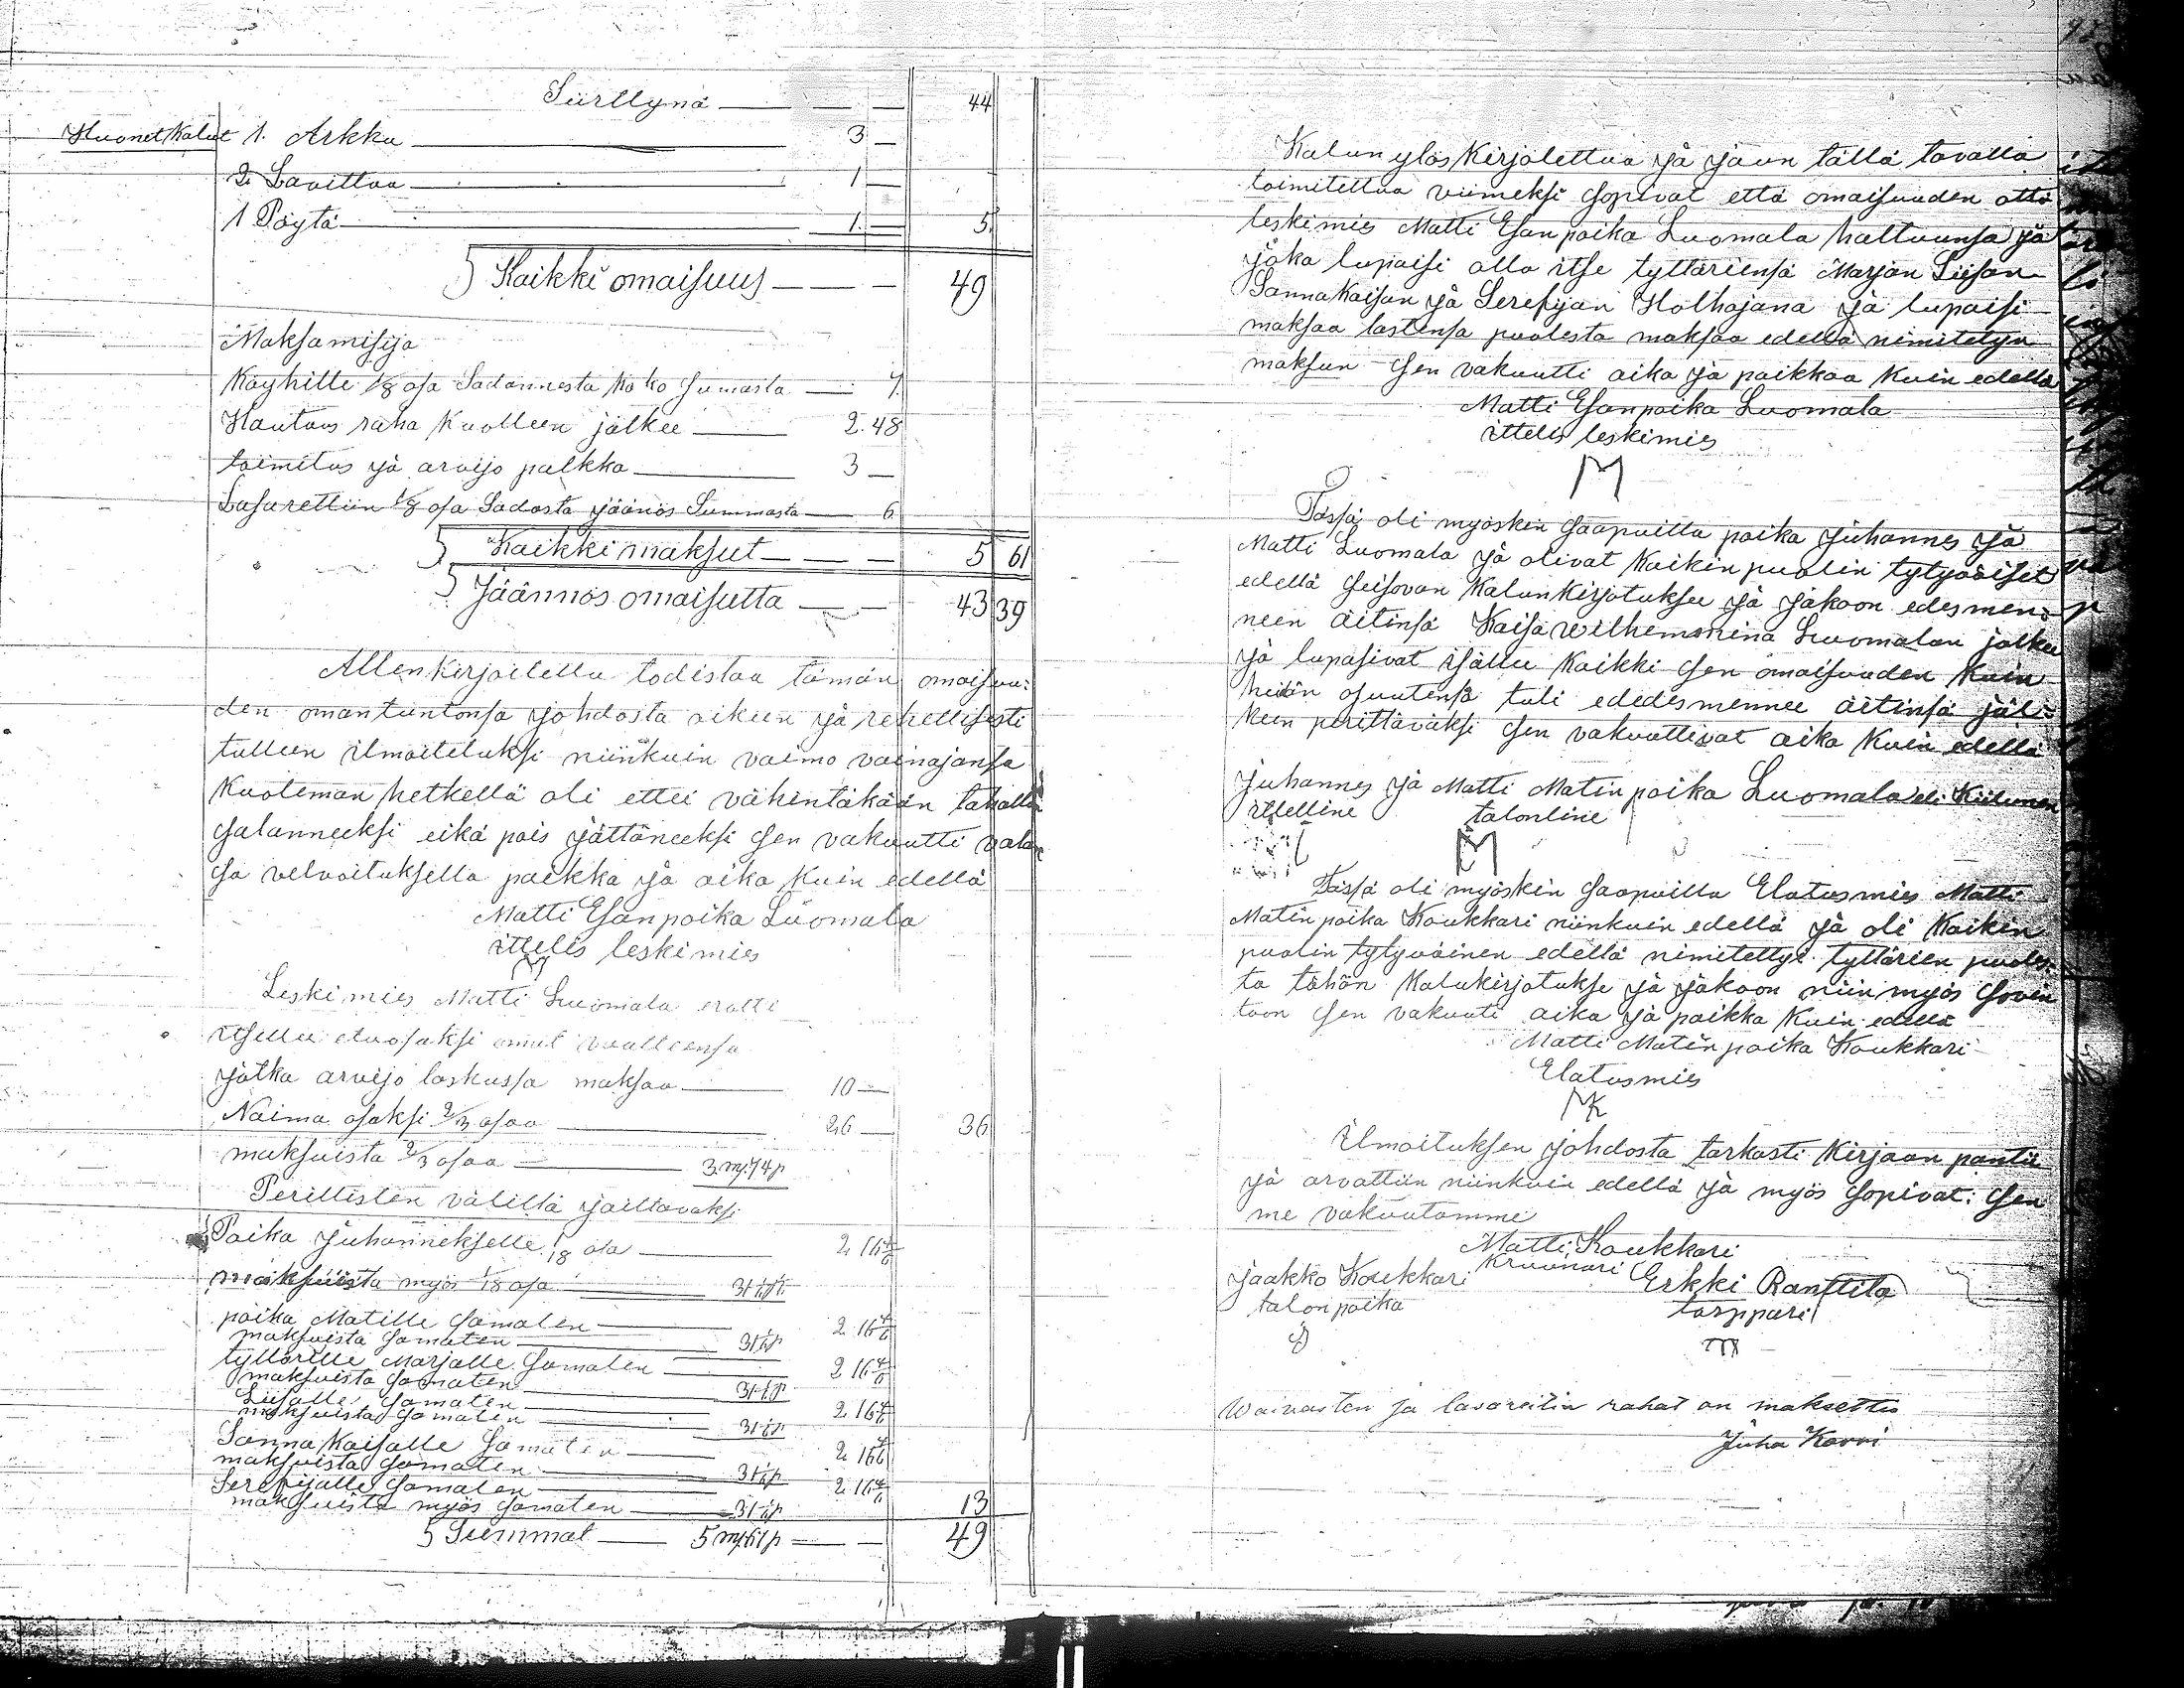 Siirttynä — — 44
Huonet Kalut 1. Arkku — 3 —
2. Lavittaa — 1 —
1 Pöytä — 1. — 5.
Kaikki omaisuus — — — 49
Maksamisija
Käyhille 1/8 osa Sadannesta koko sumasta — 7.
Hautaus raha Kuolleen jälkee — 2.48
toimitus ja arvijo palkka — 3 —
Lasarettiin 1/8 osa Sadasta jäänös Summasta — 6
Kaikki maksut — — — 5 61
Jäännös omaisutta — — 43 39
Allenkirjoitettu todistaa tämän omaisuu:
den omantuntonsa johdosta oikeen ja rehellisesti
tulleen ilmoiteluksi niinkuin vaimo vainajansa
Kuoleman hetkellä oli ettei vähintäkään tahalla
salanneeksi eikä pois jättäneeksi sen vakuutti valan
sa velvoituksella paikka ja aika Kuin edellä
Matti Esanpoika Luomala
ittelis leskimies
M
Leskimies Matti Luomala erotti
itsellee etuosaksi omat vaatteensa
jotka arvijo laskussa maksaa — 10 —
Naima osaksi 2/3 osaa — 26 — 36
maksuista 2/3 osaa — 3.mj:74p
Perillisten välillä jaettavaksi
Poika Juhannekselle 1/18 osa — 2 16 4/6
maksuista myös 1/18 osa — 31 1/6p
poika Matille Samaten — 2 16 4/6
maksuista Samaten — 31 1/6p
tyttärille Marjalle Samaten — 2 16 4/6
maksuista Samaten — 31 1/6p
Liisalle Samaten — 2 16 4/6
maksuista Samaten — 31 1/6p
Sanna Kaisalle Samaten — 2 16 4/6
maksuista Samaten — 31 1/6p
Serefijalle Samaten — 2 16 4/6
maksuista myös Samaten — 31 1/6p 13
Summat — 5 mj:61p — — 49
Kalun ylös Kirjotettua ja jaun tällä tavalla
toimitettua viimeksi sopivat että omaisuuden otti
leskimies Matti Esanpoika Luomala haltuunsa ja
joka lupaisi olla itse tyttäriensä Marjan Liisan
Sanna Kaisan ja Serefijan Holhojana ja lupaisi
maksaa lastensa puolesta maksaa edellä nimitetyn
maksun sen vakuutti aika ja paikkaa Kuin edellä
Matti Esanpoika Luomala
ittelis leskimies
M
Tässä oli myöskin saapuilla poika Juhannes ja
Matti Luomala ja olivat Kaikin puolin tytyväiset
edellä seisovan Kalunkirjotuksee ja jakoon edesmen:
neen äitinsä Kaisa wilhemmina Luomalan jälkee
ja lupasivat isällee Kaikki sen omaisuuden Kuin
heidän osuutensa tuli ededesmennee äitinsä jäl:
keen perittäväksi sen vakuuttivat aika Kuin edellä
Juhannes ja Matti Matin poika Luomala eli Kiilunen
ittelline talonline
M
Tässä oli myöskin saapuilla Elatusmies Matti
Matin poika Koukkari niinkuin edellä ja oli Kaikin
puolin tytyväinen edellä nimitettyi tyttärien puoles:
ta tähän Kalukirjotukse ja jakoon niin myös sovin
toon sen vakuuti aika ja paikka Kuin edellä
Matti Matin poika Koukkari
Elatusmies
MK
ilmoituksen johdosta tarkasti Kirjaan pantii
ja arvattiin niinkuin edellä ja myös sopivat: sen
me vakuutamme
Matti Koukkari
Kruunari
Jaakko Koukkari Erkki Ranttila
talonpoika torppari
Waivasten ja lasaretin rahat on maksettu
Juha Karvi